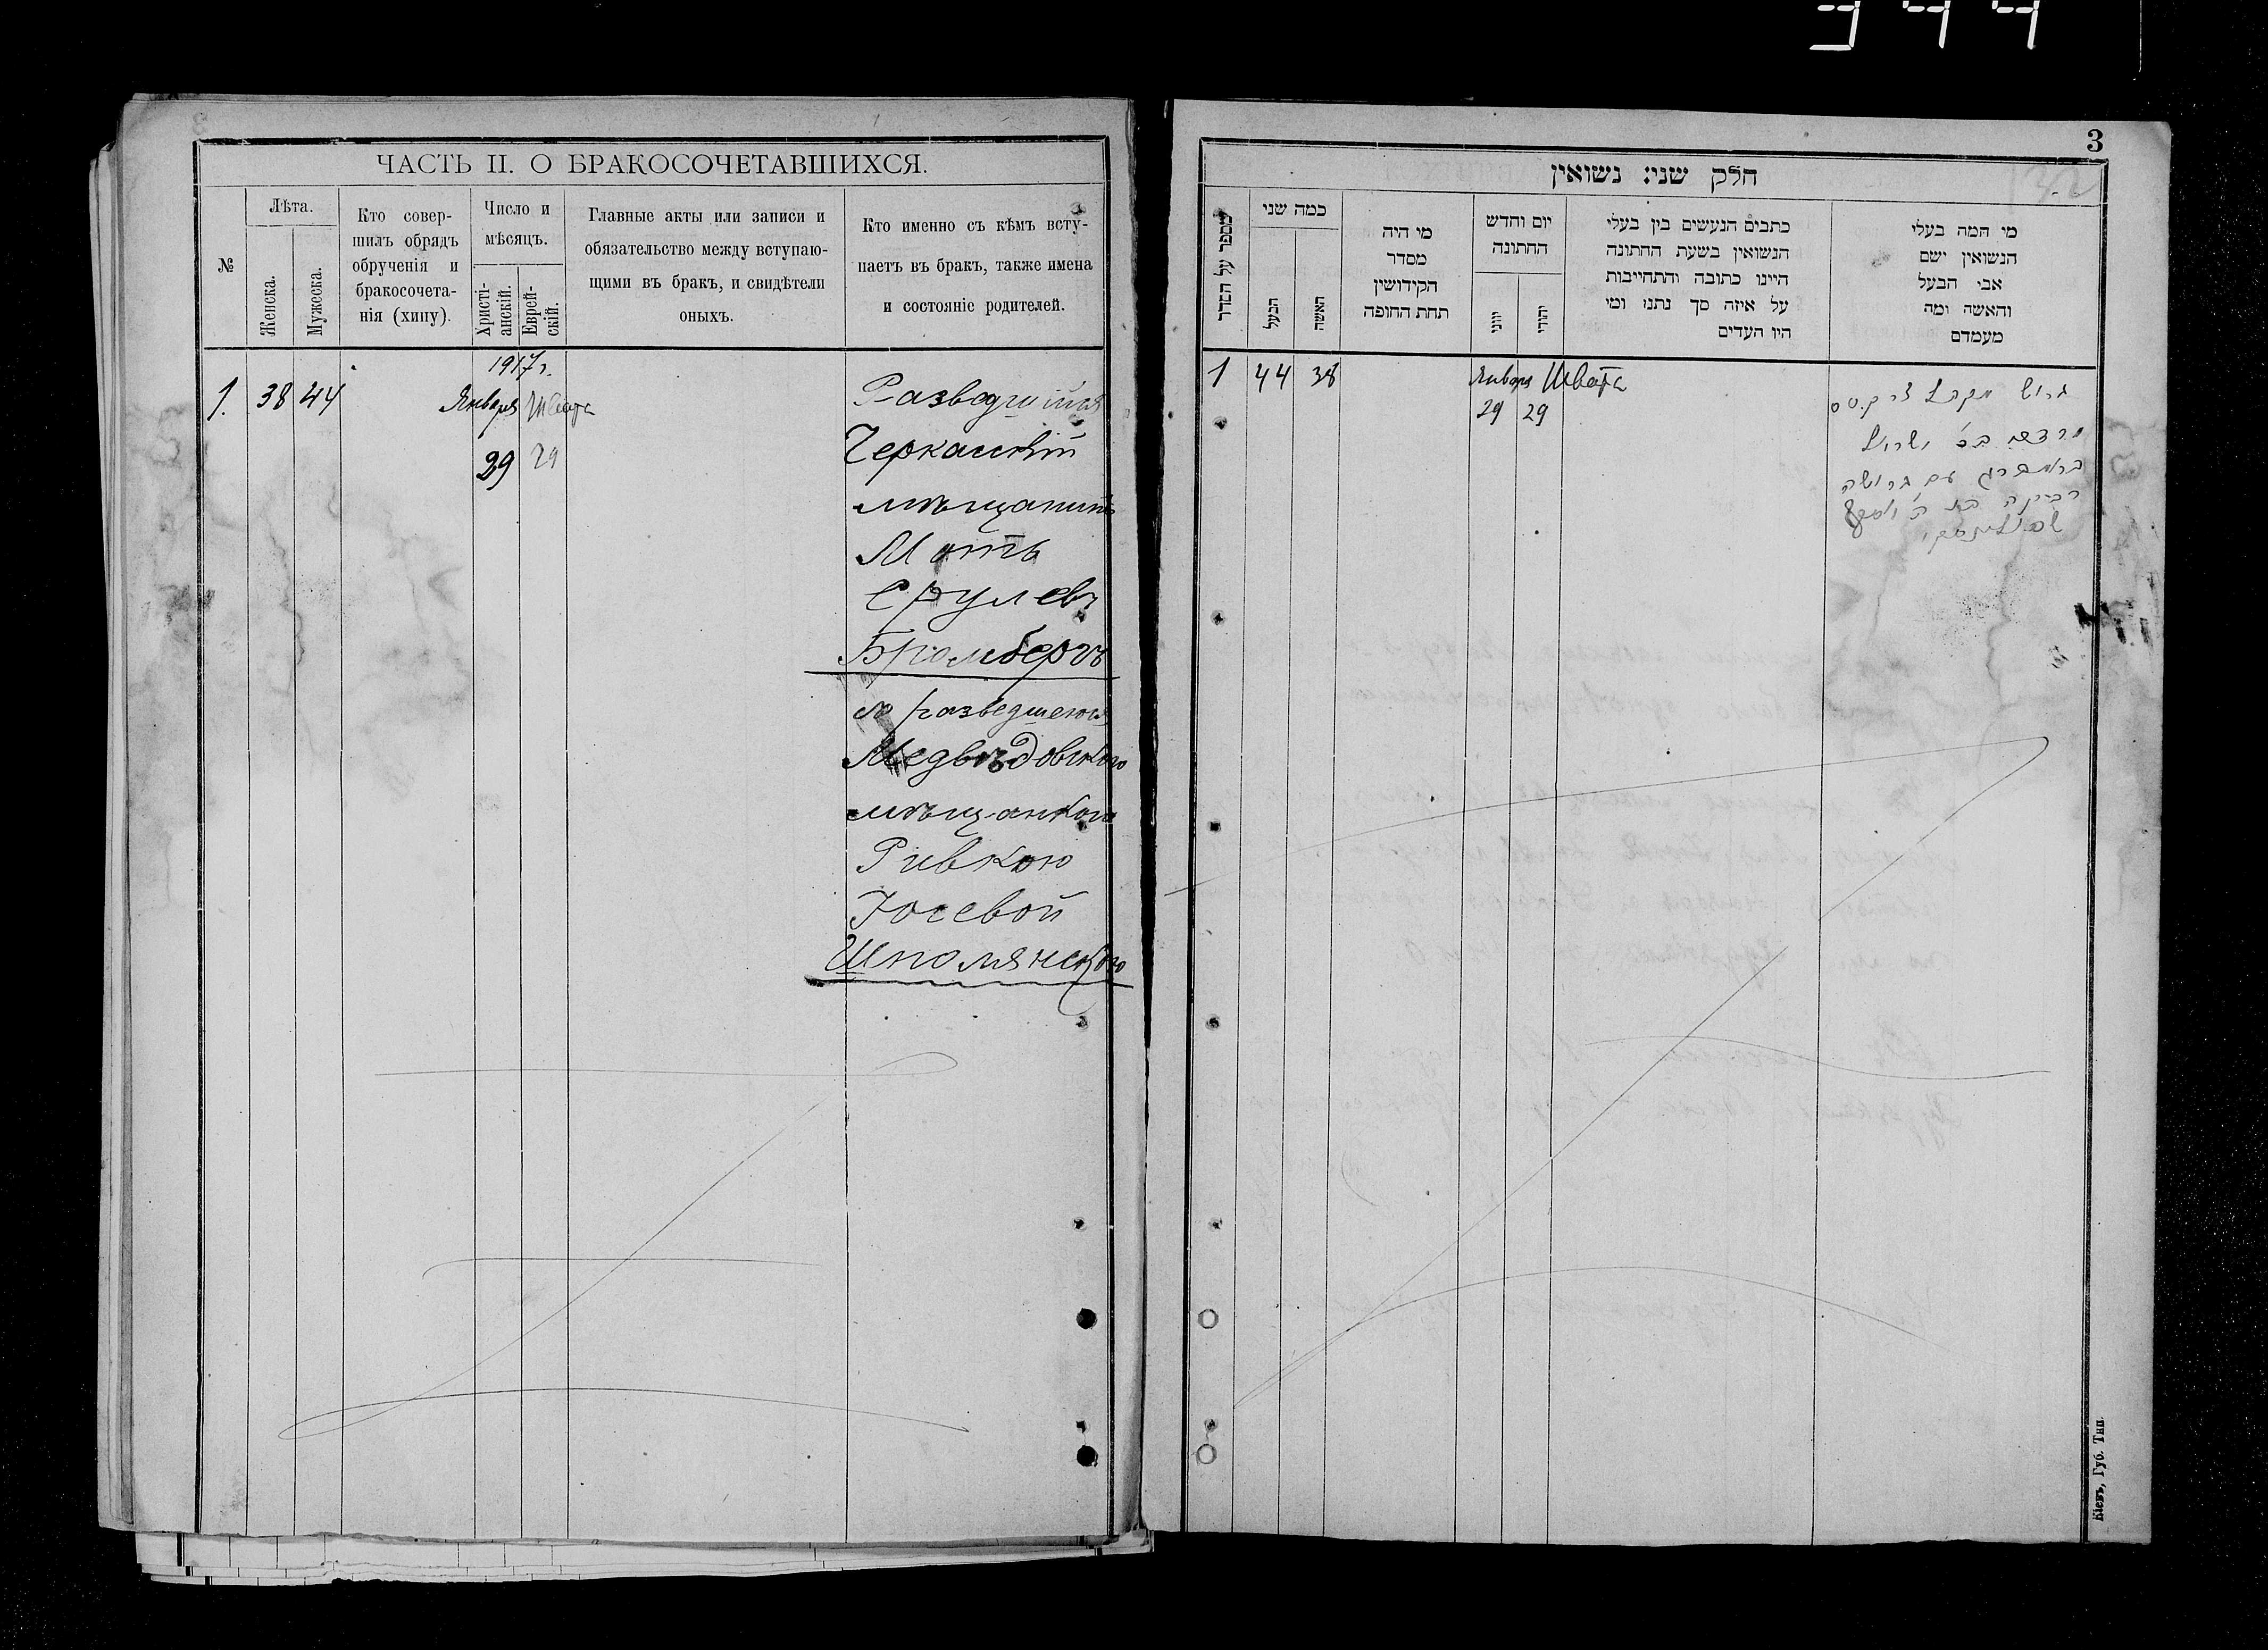 ЧАСТЬ II. О БРАКОСОЧЕТАВШИХСЯ.
№
Лѣта.
Женска.
Мужеска.
Кто совер-
шилъ обрядъ
обрученія и
бракосочета-
нія (хипу).
Число и
мѣсяцъ.
Христі-
анскій.
Еврей-
скій.
Главные акты или записи и
обязательство между вступаю-
щими въ бракъ, и свидѣтели
оныхъ.
Кто именно съ кѣмъ всту-
паетъ въ бракъ, также имена
и состояніе родителей.
1917 г.
1. 38 44 Января Швата
29 29
Разведшійся
Черкасскій
мѣщанинъ
Мотъ
Срулевъ
Бромбергъ
съ разведшеюся
Медвѣдовскою
мѣщанкою
Ривкою
Іосевой
Шполянскою
3
חלק שני: נשואין
מספר על הסדר
כמה שני
הבעל
האשה
מי היה
מסדר
הקידושין
תחת החופה
יום וחדש
החתונה
יווני
יהודי
כתבים הנעשים בין בעלי
הנשואין בשעת החתונה
היינו כתובה והתחייבות
על איזה סך נתנו ומי
היו העדים
מי המה בעלי
הנשואין ושם
אבי הבעל
והאשה ומה
מעמדם
1 44 38 Января Швата
29 29
גרוש
ישראל
בראמבערג עם גרושה
רבקה בת
Кіевъ, Губ. Тип.